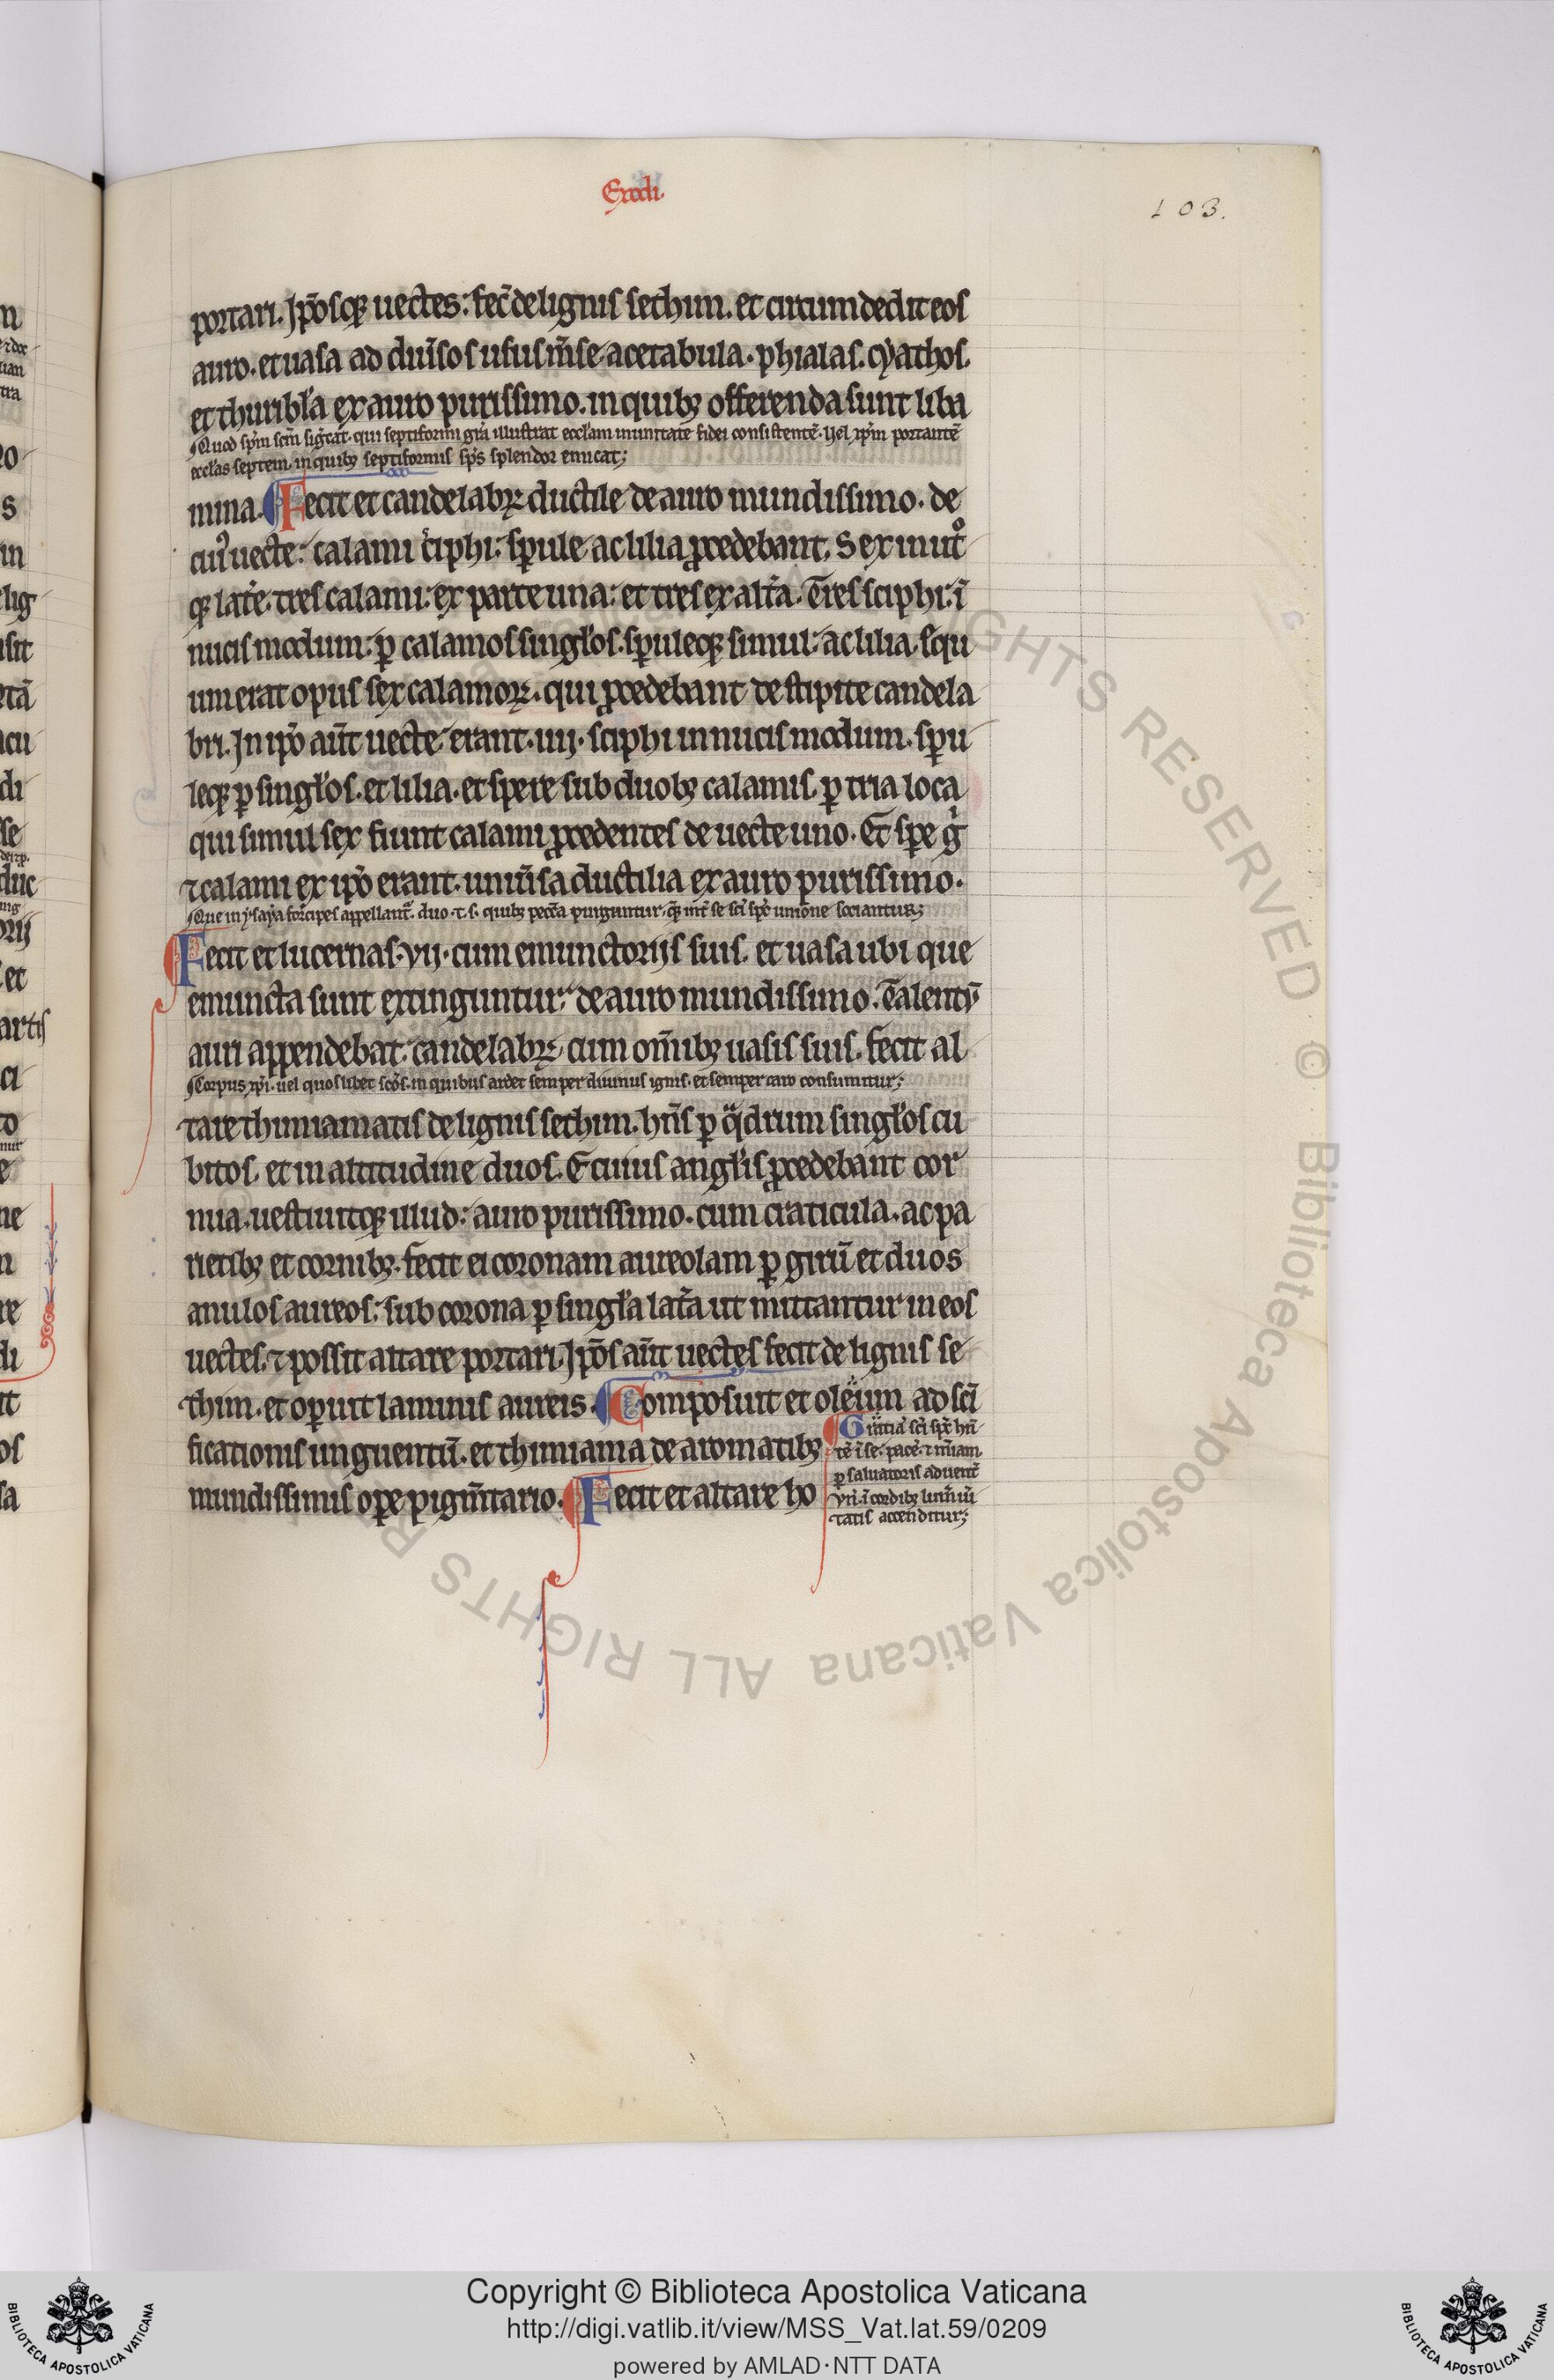 Exodi.
103.
portari. Jp̄osq; uectes: fec̄ de lignis sethim. et circumdedit eos
auro. et uasa ad diu̓sos usus m̄se acetabula. phialas. cyathos.
et thuribl̓a ex auro purissimo. in quib; offerenda sunt liba
Quod sp̄m sc̄m sig̓cat. qui septiformi gr̄a illustrat eccl̓am in unitate fidei consistentē. Uel xp̄m portantē
eccl̓as septem. in quib; septiformis sp̄s splendor emicat;
mina. Fecit et candelabꝝ ductile de auro mundissimo. de
cuiꝰ uecte: calami ciphi: sperule ac lilia ꝓcedebant. Sex in ut̊
q; late̓. tres calami: ex parte una: et tres ex alt̄a. Tres sciphi: ī
nucis modum: ꝑ calamos singl̓os. sꝑuleq; simul: ac lilia. sequ
um erat opus sex calamoꝝ. qui ꝓcedebant de stipite candela
bri. Jn ip̄o aūt uecte erant. iiij. sciphi in nucis modum. sꝑu
leq; ꝑ singl̓os. et lilia. et spere sub duob; calamis. ꝑ tria loca
qui simul sex fiunt calami ꝓcedentes de uecte uno. Et sꝑe g̓
⁊ calami ex ip̄o erant. uniu̓sa ductilia ex auro purissimo.
Que in ysaya forcipes appellant᷑. duo. t. s. quib; pecc̄a purguntur. q; int̄ se sc̄i sp̄c unione sociantur;
Fecit et lucernas. vij. cum emunctorijs suis. et uasa ubi que
emuncta sunt extinguntur: de auro mundissimo. Talentū
auri appendebat: candelabꝝ cum om̄ib; uasis suis. Fecit al
Corpus xp̄i. uel quoslibet sc̄os. in quibus ardet semper diuinus ignis. et semper caro consumitur;
tare thimiamatis de lignis sethim. hn̄s ꝑ q̓drum singl̓os cu
bitos. et in altitudine duos. E cuius angl̓is ꝓcedebant cor
nua. uestiuitq; illud: auro purissimo. cum craticula. ac pa
rietib; et cornib;. fecit ei coronam aureolam ꝑ girū et duos
anulos aureos: sub corona ꝑ singl̓a lat̄a ut mittantur in eos
uectes. ⁊ possit altare portari. Jp̄os aūt uectes fecit de lignis se
thim. et oꝑuit laminis aureis. Composuit et oleum ad sc̄i
ficationis unguentū. et thimiama de aromatib;
mundissimis oꝑe pigm̄tario. Fecit et altare ho
Gratia sc̄i sp̄c hn̄
tē ī se. pacē. ⁊ m̄iam.
ꝑ saluatoris aduent̄
vn̄. ī cordib; lum̄ iū
tatis accenditur;
Copyright © Biblioteca Apostolica Vaticana
http://digi.vatlib.it/view/MSS_Vat.lat.59/0209
powered by AMLAD·NTT DATA
BIBLIOTECA APOSTOLICA VATICANA
BIBLIOTECA APOSTOLICA VATICANA
© Biblioteca Apostolica Vaticana ALL RIGHTS RESERVED